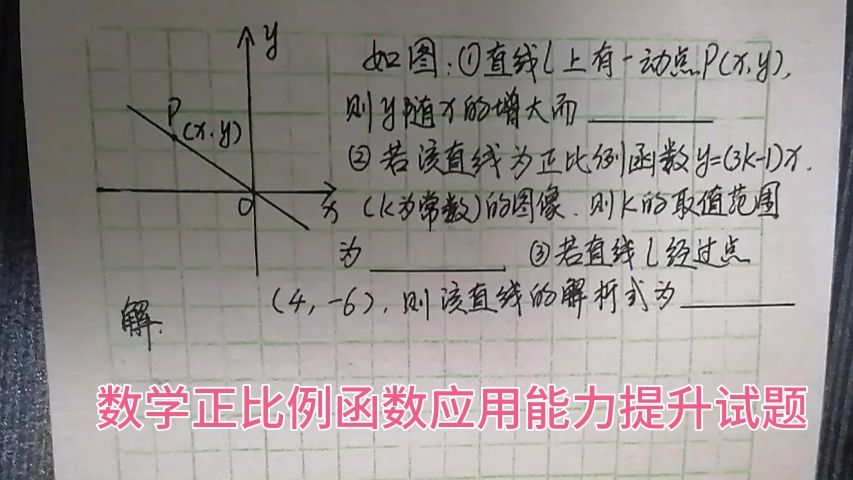 y
如图:①直线l上有一动点P(x,y),
P
(x,y)
则y随x的增大而
②若该直线为正比例函数y=(3k-1)x.
O
x
(k为常数)的图像.则k的取值范围
为 ③若直线l经过点
(4,-6),则该直线的解析式为
解.
数学正比例函数应用能力提升试题